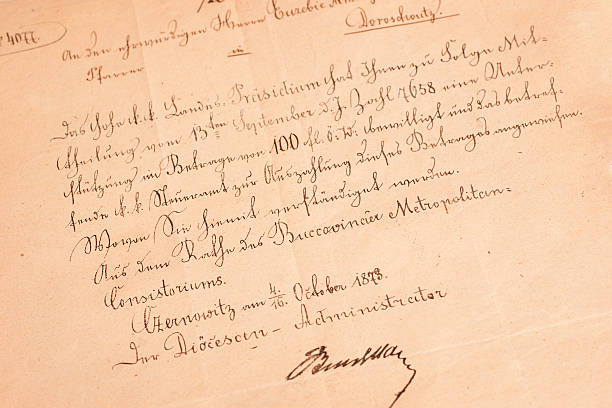 4077.
An den ehrwürdigen Herrn Euzebie
Pfarrer in Doroschoutz.
Das hohe k. k. Landes-Präsidium hat Ihnen zu Folge Mit-
theilung vom 13ten September d. J. Zahl 7658 eine Unter-
stützung im Betrage von 100 fl. ö. W. bewilligt und das betref-
fende k. k. Steueramt zur Auszahlung dieses Betrages angewiesen.
Wovon Sie hiemit verständiget werden.
Aus dem Rathe des Buccovinaer Metropolitan-
Consistoriums.
Czernowitz am 4/16. October 1873.
Der Diöcesan-Administrator